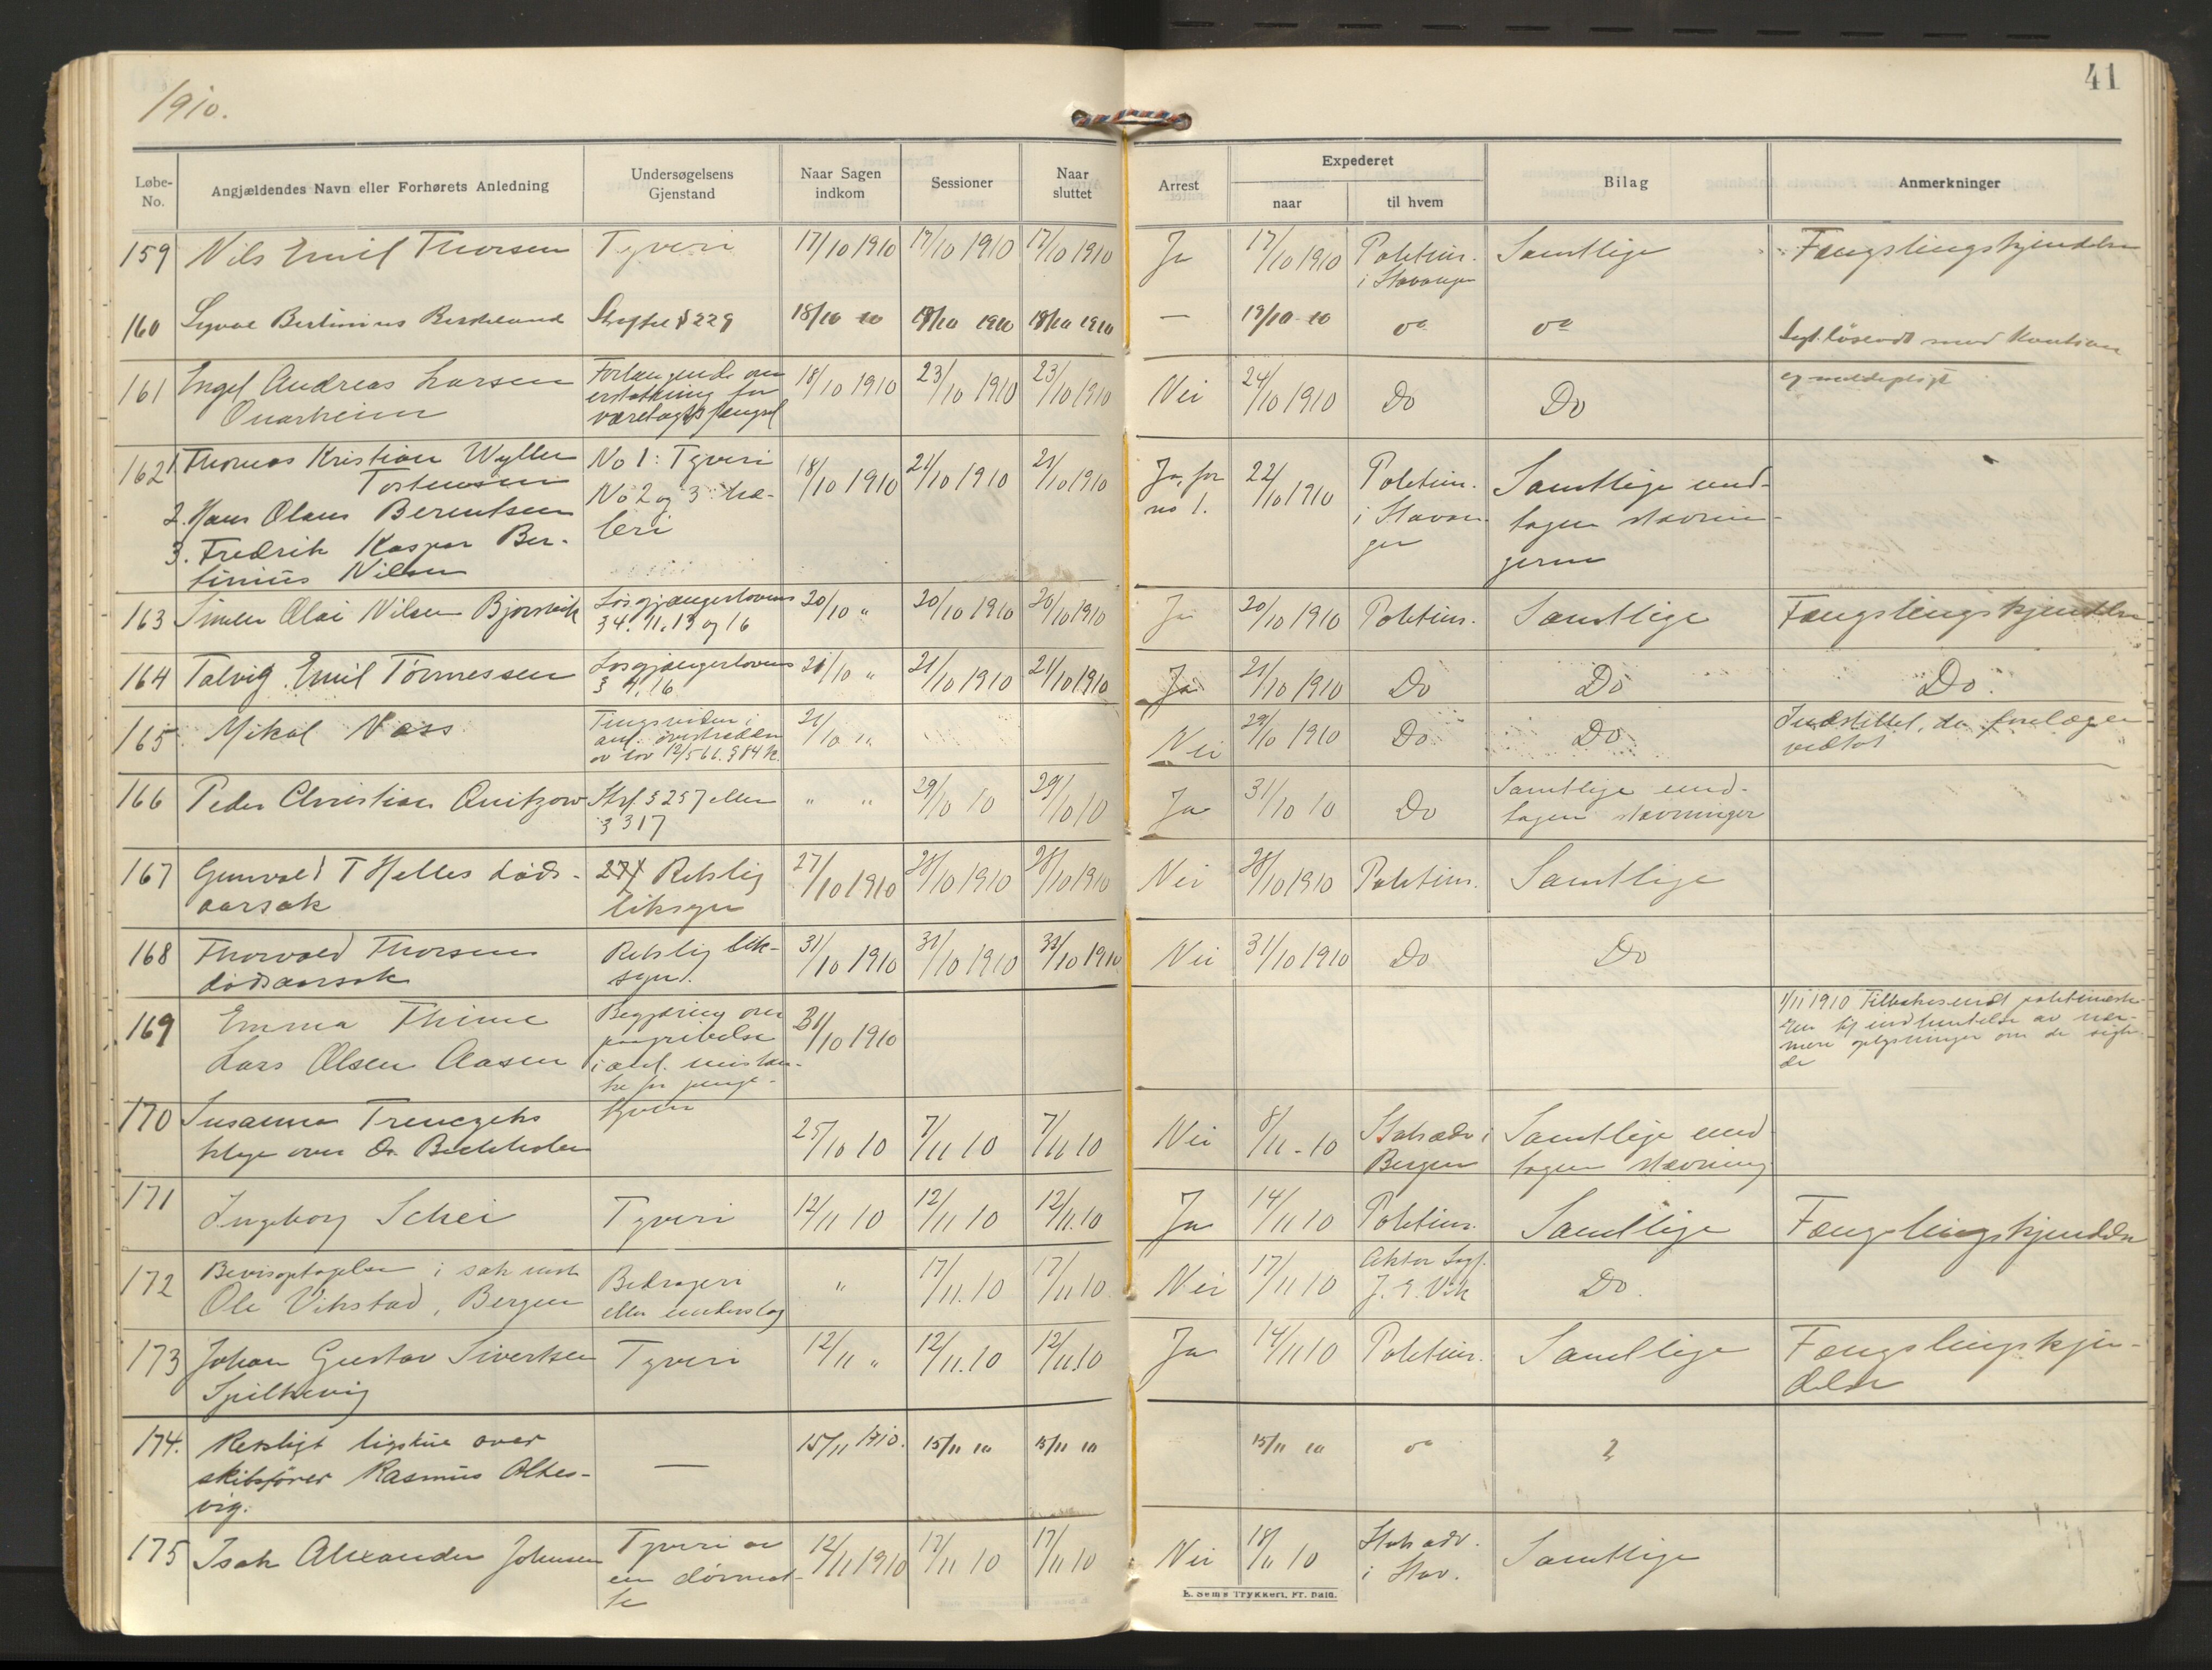 1910.
41
Løbe-No.
Angjældendes Navn eller Forhørets Anledning
Undersøgelsens Gjenstand
Naar Sagen indkom
Sessioner
Naar sluttet
Arrest
Expederet
naar
til hvem
Bilag
Anmerkninger
159 Nils Emil Thorsen Tyveri 17/10 1910 17/10 1910 17/10 1910 Ja 17/10 1910 Politim. Samtlige Fængslingskjendelse
i Stavanger
160 Bertinius 18/10 10 18/10 1910 18/10 1910 — 19/10 10 do do
§ 229
med kaution
og meldepligt
161 Engel Andreas Larsen Forlangende om 18/10 1910 23/10 1910 23/10 1910 Nei 24/10 1910 Do Do
Qvarheim erstatning for
varetægtsfængsel
162 1. Thomas Kristian Wyller No 1: Tyveri 18/10 1910 21/10 1910 21/10 1910 Ja, for 22/10 1910 Politim. Samtlige und-
Torstensen No 2 og 3 hæ- no 1. i Stavan- tagen stævnin-
2. Hans Olaus Berentsen leri ger gerne
3. Fredrik Kaspar Ber-
tinius Nilsen
163 Olai Nilsen Bjørnvik Løsgjængerlovens 20/10 " 20/10 1910 20/10 1910 Ja 20/10 1910 Politim. Samtlige Fængslingskjendelse
§ 4. 11. 13 og 16
164 Talvig Emil Tønnessen Løsgjængerlovens 21/10 " 21/10 1910 21/10 1910 Ja 21/10 1910 Do Do Do.
§ 4. 16
165 Mikal Næss Tingsviden i 21/10 " Nei 29/10 1910 Do Do Indstillet, da forelægget
anl. overtrædelse vedtat
av lov 12/5 66. § 84 k.
166 Peder Christian Quitzow Strf. § 257 eller " " 29/10 10 29/10 10 Ja 31/10 10 Do Samtlige und-
§ 317 tagen stævninger
167 Gunvald T Helles døds- Retslig 27/10 1910 28/10 1910 28/10 1910 Nei 28/10 1910 Politim. Samtlige
aarsak liksyn
168 Thorvald Thorsens Retslig lik- 31/10 1910 31/10 1910 31/10 1910 Nei 31/10 1910 Do Do
dødsaarsak syn.
169 Emma Thime Begjæring om 31/10 1910 1/11 1910 Tilbakesendt politimeste-
Lars Olsen Aasen paagribelse ren til indhentelse av nær-
i anl. mistan- mere oplysninger om de sigte-
ke for penge- de
tyveri
170 Susanna Trenczeks 25/10 10 7/11 10 7/11 10 Nei 8/11 - 10 Statsadv i Samtlige und
klage over Dr. Bergen tagen stævning
171 Ingeborg Schei Tyveri 12/11 10 12/11 10 12/11.10 Ja 14/11 10 Politim. Samtlige Fængslingskjendelse
172 Bevisoptagelse i sak mot Bedrageri " 17/11.10 17/11 10 Nei 17/11 10 Aktor Sagf. Do.
Ole Vikstad, Bergen eller underslag J. E. Vik
173 Johan Gustav Sivertsen Tyveri 12/11 " 12/11.10 12/11.10 Ja 14/11 10 Politim. Samtlige Fængslingskjen-
Spilkevig delse
174. Retsligt ligskue over — 15/11 1910. 15/11 10 15/11 10 15/11 10 do
skibsfører Rasmus Alkes-
vig.
175 Isak Alexander Johnsen Tyveri av 12/11 1910 17/11 10 17/11 10 Nei 18/11 10 Statsadv. Samtlige
en dørmat- i Stav.
te
E. Sem's Trykkeri, Fr. hald.